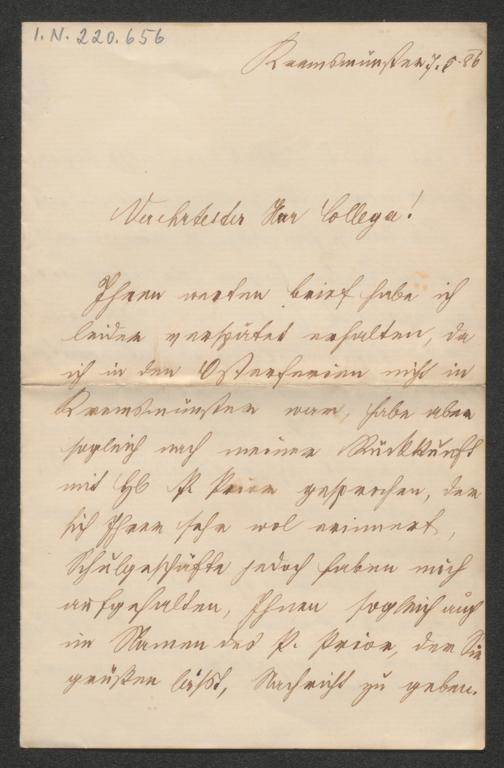 I.N. 220.656
Kremsmünster 7.5.86
Verehrtester Herr Collega!
Ihren werten brief habe ich
leider verspätet erhalten, da
ich in den Osterferien nicht in
Kremsmünster war, habe aber
sogleich nach meiner Rückkunft
mit P. Prior gesprochen, der
sich Ihrer sehr wol erinnert,
Schulgeschäfte jedoch haben mich
aufgehalten, Ihnen sogleich auch
im Namen des P. Prior, der Sie
grüßen läßt, Nachricht zu geben.